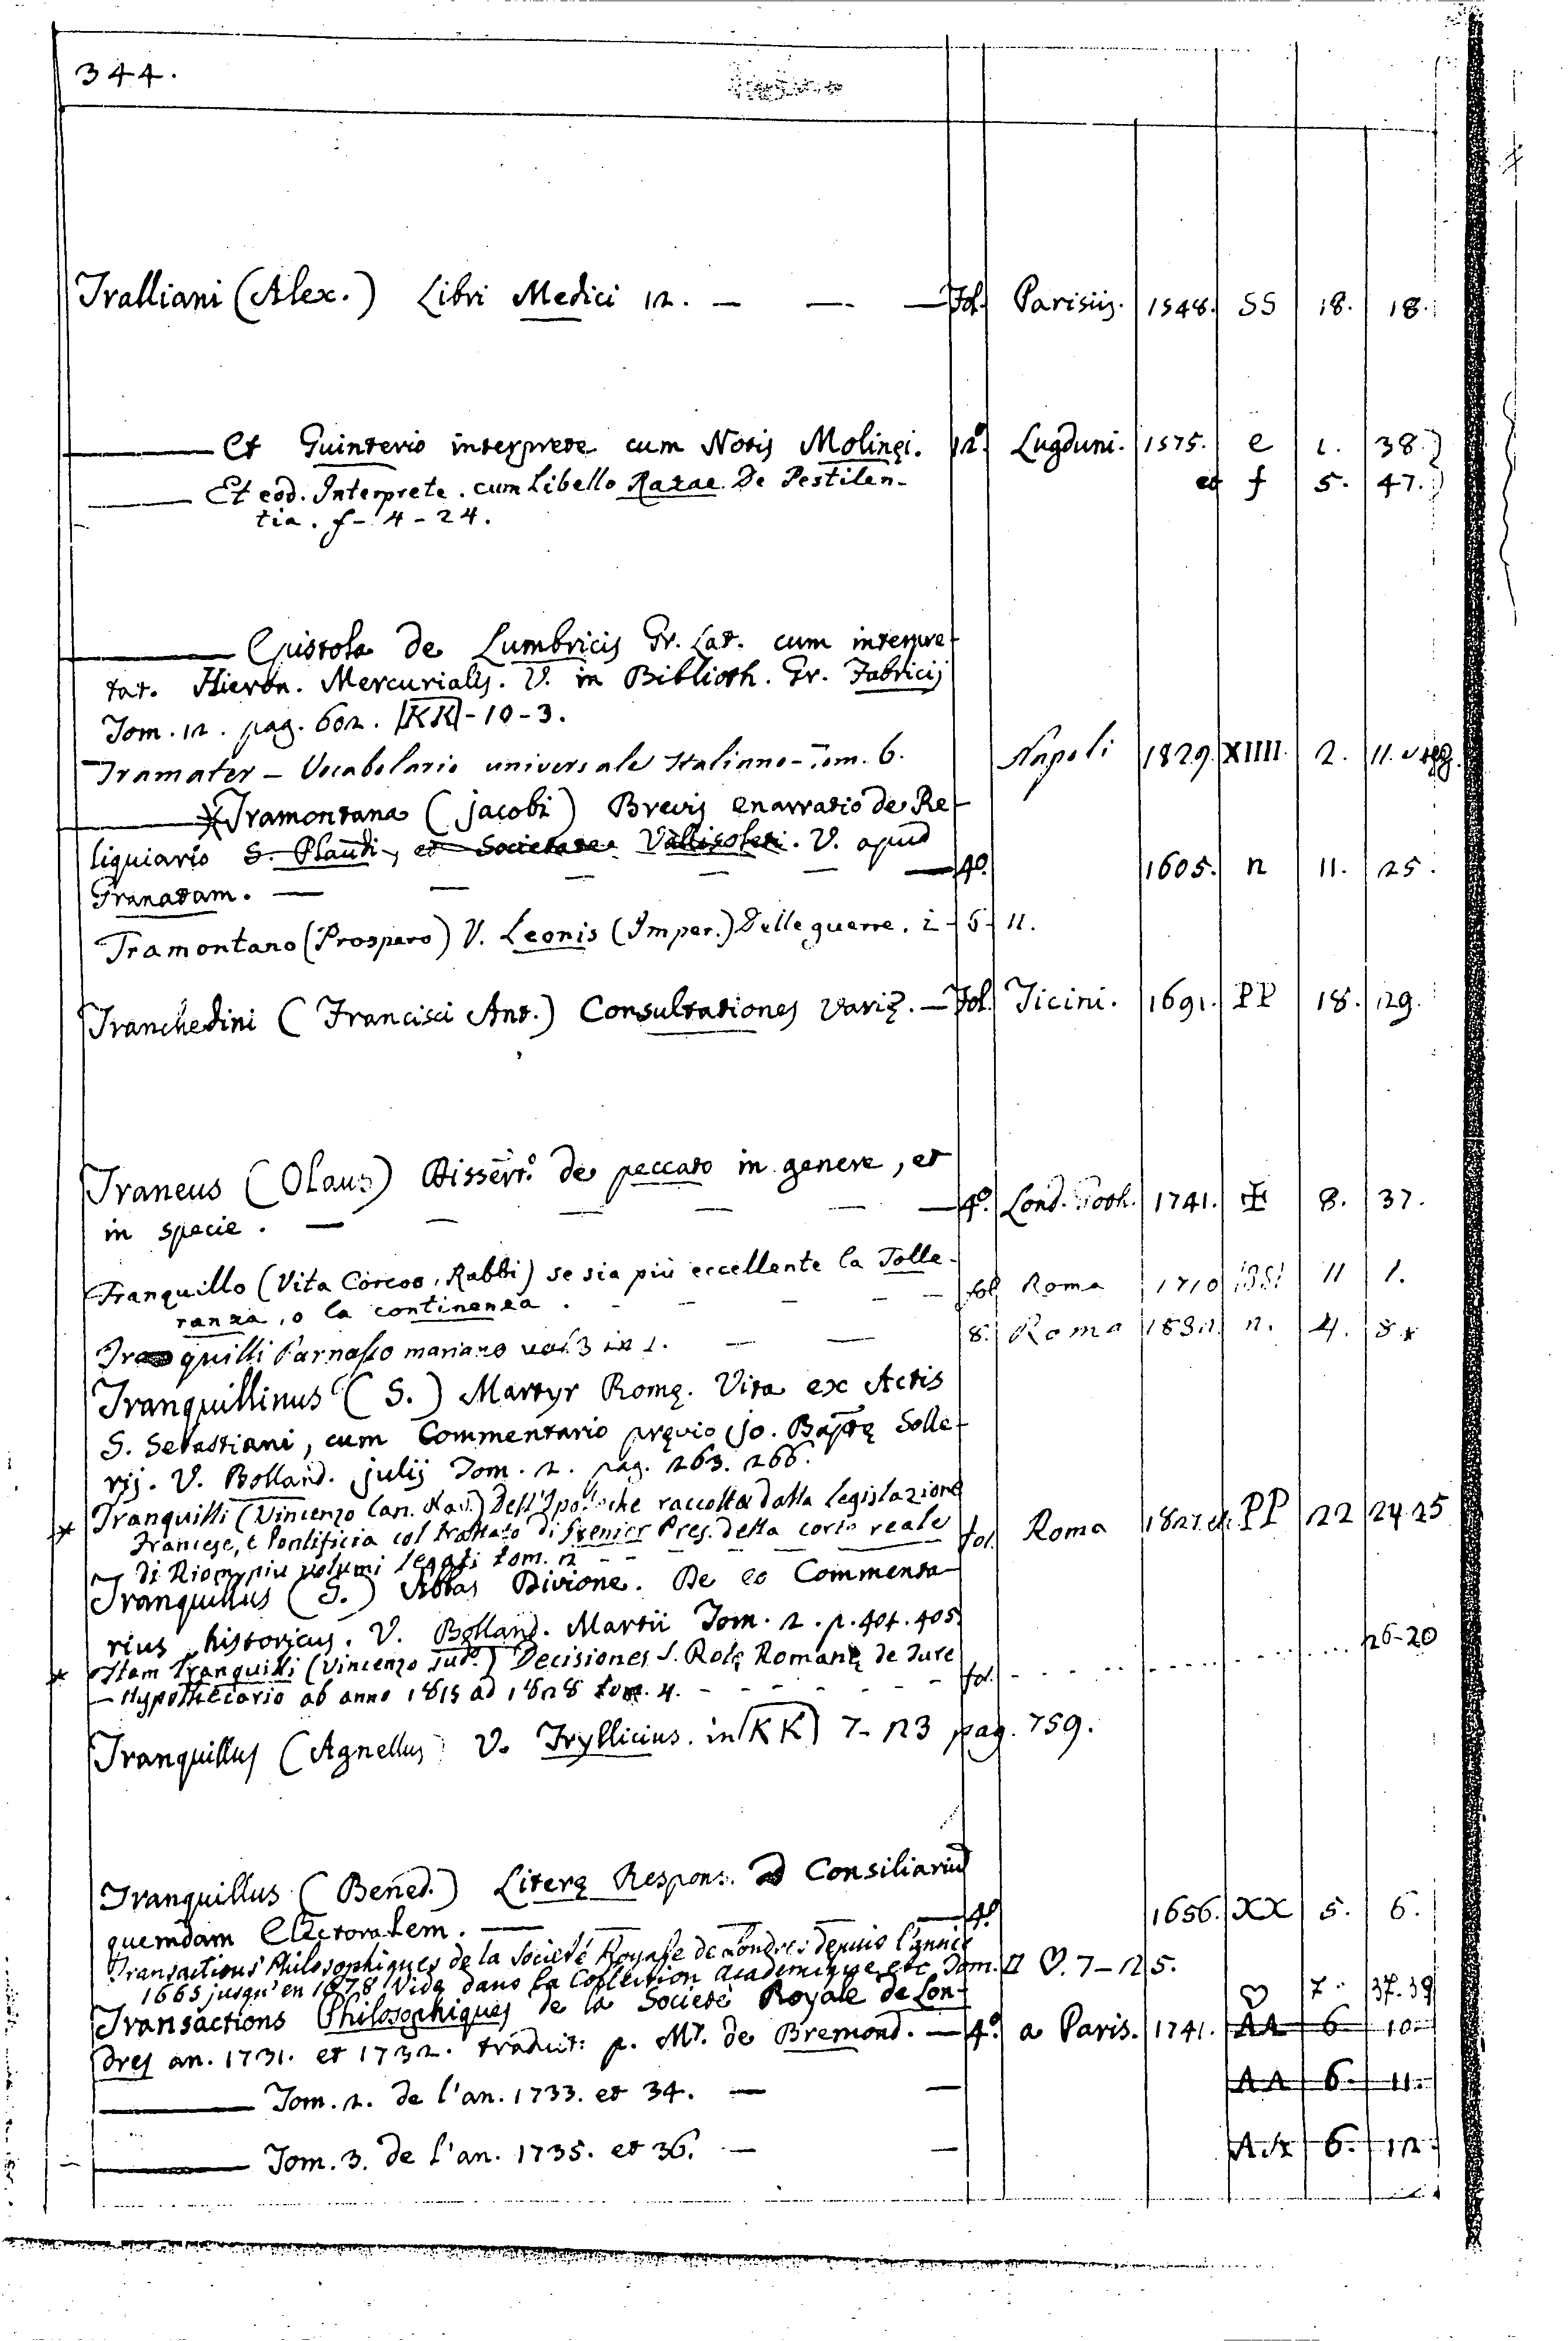 344.
Tralliani (Alex.) Libri Medici 12. — — — Fol. Parisiis. 1548. SS 18. 18.
——— Et Guinterio interprete cum Notis Molinęi. 12.° Lugduni. 1575. e 1. 38.
——— Et eod. Interprete. cum Libello Razae De Pestilen- et f 5. 47.
tia. f - 4 - 24.
——— Epistola de Lumbricis Gr. Lat. cum interpre-
tat. Hieron. Mercurialis. V. in Biblioth. Gr. Fabricij
Tom. 12. pag. 602. KK - 10 - 3.
Tramater - Vocabolario universale Italiano - Tom. 6. Napoli 1829. XIIII. 2. 11.
Tramontana (Jacobi) Brevis enarratio de Re-
liquiario S. Plaudi, et Societatee Vallisoleti. V. apud
Granatam. — — — — — — 4.° 1605. n 11. 25.
Tramontano (Prospero) V. Leonis (Imper.) Delle guerre. i - 5 - 11.
Tranchedini (Francisci Ant.) Consultationes Varię. — Fol. Ticini. 1691. PP 18. 29.
Traneus (Olaus) Dissert.° de peccato in genere, et
in specie. — — — — — — 4.° Lond. Goth. 1741. 8. 37.
Tranquillo (Vita Corcos, Rabbi) se sia più eccellente la Tolle-
ranza, o la continenza. - - - - - fol. Roma 1710 11 1.
quilli Parnasso mariano vol. 3 in 1. — — 8. Roma 183 n. 4. 8
Tranquillinus (S.) Martyr Romę. Vita ex Actis
S. Sebastiani, cum Commentario pręvio Jo. Baptę Solle-
rij. V. Bolland. julij Tom. 2. pag. 263. 266.
* Tranquilli (Vincenzo Can. ) Dell' raccolta dalla legislazione
Francese, e Pontificia col trattato di Grenier Pres. della corte reale fol. Roma 1827 PP 22 24-25
di Riom, più volumi legati tom. 2 - -
Tranquillus (S.) Abbas Divione. De eo Commenta-
rius historicus. V. Bolland. Martii Tom. 2. p. 404. 405.
* Item Tranquilli (Vincenzo ) Decisiones S. Rotę Romanę de Jure 26-20
— Hypothecario ab anno 1815 ad 1828 tom. 4. - - - - - fol.
Tranquillus (Agnellus) V. Tryllicius. in KK 7 - 23 pag. 759.
Tranquillus (Bened.) Literę Respons. ad Consiliariũ
quemdam Electoralem. — — — — 4.° 1656. XX 5. 6.
Transactions Philosophiques de la Societé Royale de Londres depuis l'année
1665 jusqu'en 1678 Vide dans la Collection academique etc. Tom. II ♡. 7 - 25.
Transactions Philosophiques de la Societé Royale de Lon- ♡ 7. 37. 39
dres an. 1731. et 1732. traduit: p. Mr. de Bremond. — 4.° a Paris. 1741. AA 6 10.
——— Tom. 2. de l'an. 1733. et 34. — — AA 6. 11.
——— Tom. 3. de l'an. 1735. et 36. — — AA 6. 12.